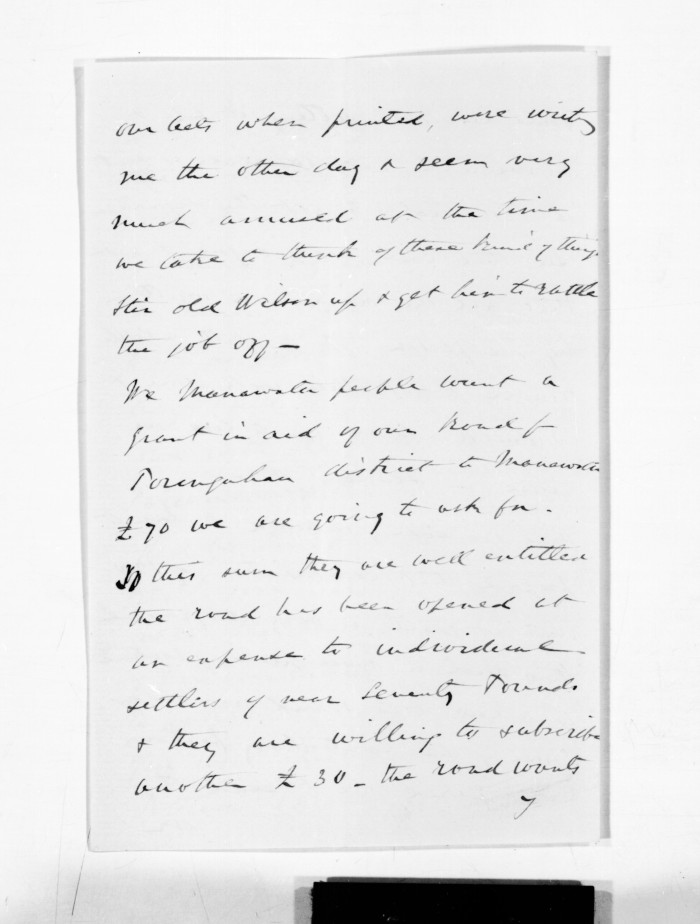 our Acts when printed, were writing
me the other day & seem very
much amused at the time
we take to think of these kind of things
Stir old Wilson up & get him to rattle
the job off —
We Manawatu people want a
grant in aid of our Road fr
Porungahau district to Manawatu
£70 we are going to ask for.
To this sum they are well entitled
the road has been opened at
an expense to individual
settlers of near Seventy Pounds
& they are willing to subscribe
another £30 — the road wants